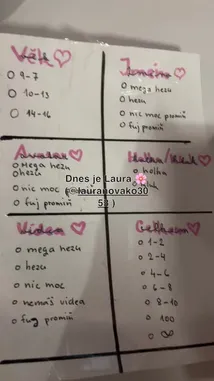 Věk
9-7
10-13
14-16
Jméno
mega hezu
hezu
nic moc promiň
fuj promiň
Avatar
mega hezu
hezu
nic moc p
fuj promiň
holka
Dnes je Laura 🌸
(@lauranovako30
53 )
Videa
mega hezu
hezu
nic moc
nemáš videa
fuj promiň
Celkem
1-2
2-4
4-6
6-8
8-10
100
∞